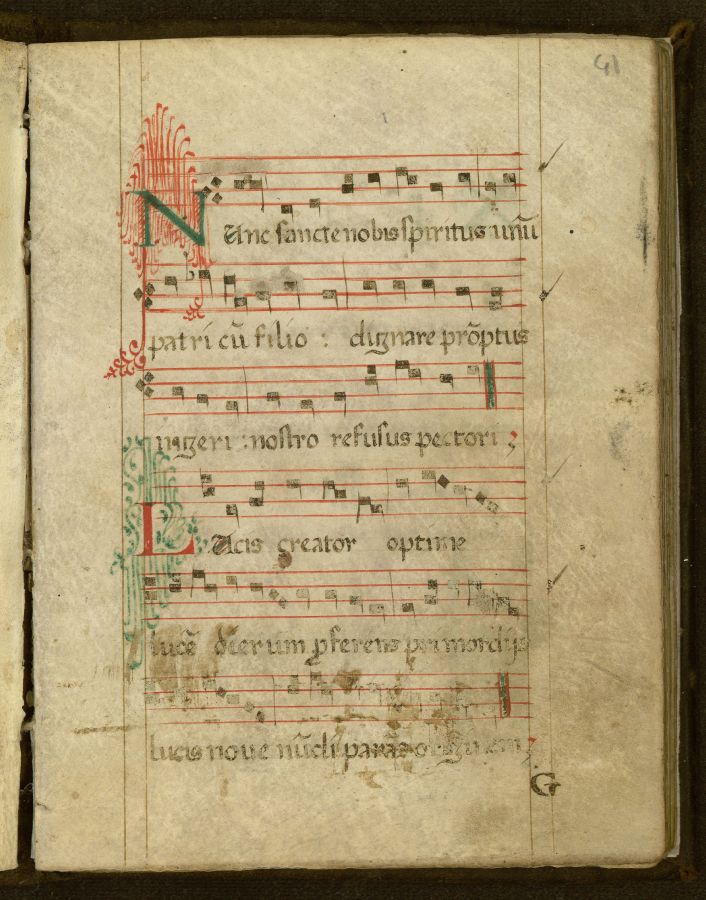 41
NUnc sancte nobis spiritus unū
patri cū filio : dignare prōptus
ingeri : nostro refusus pectori ;
LUcis creator optime
lucē dierum ꝓferens primordijs
lucis noue mūdi parās originem ;
G